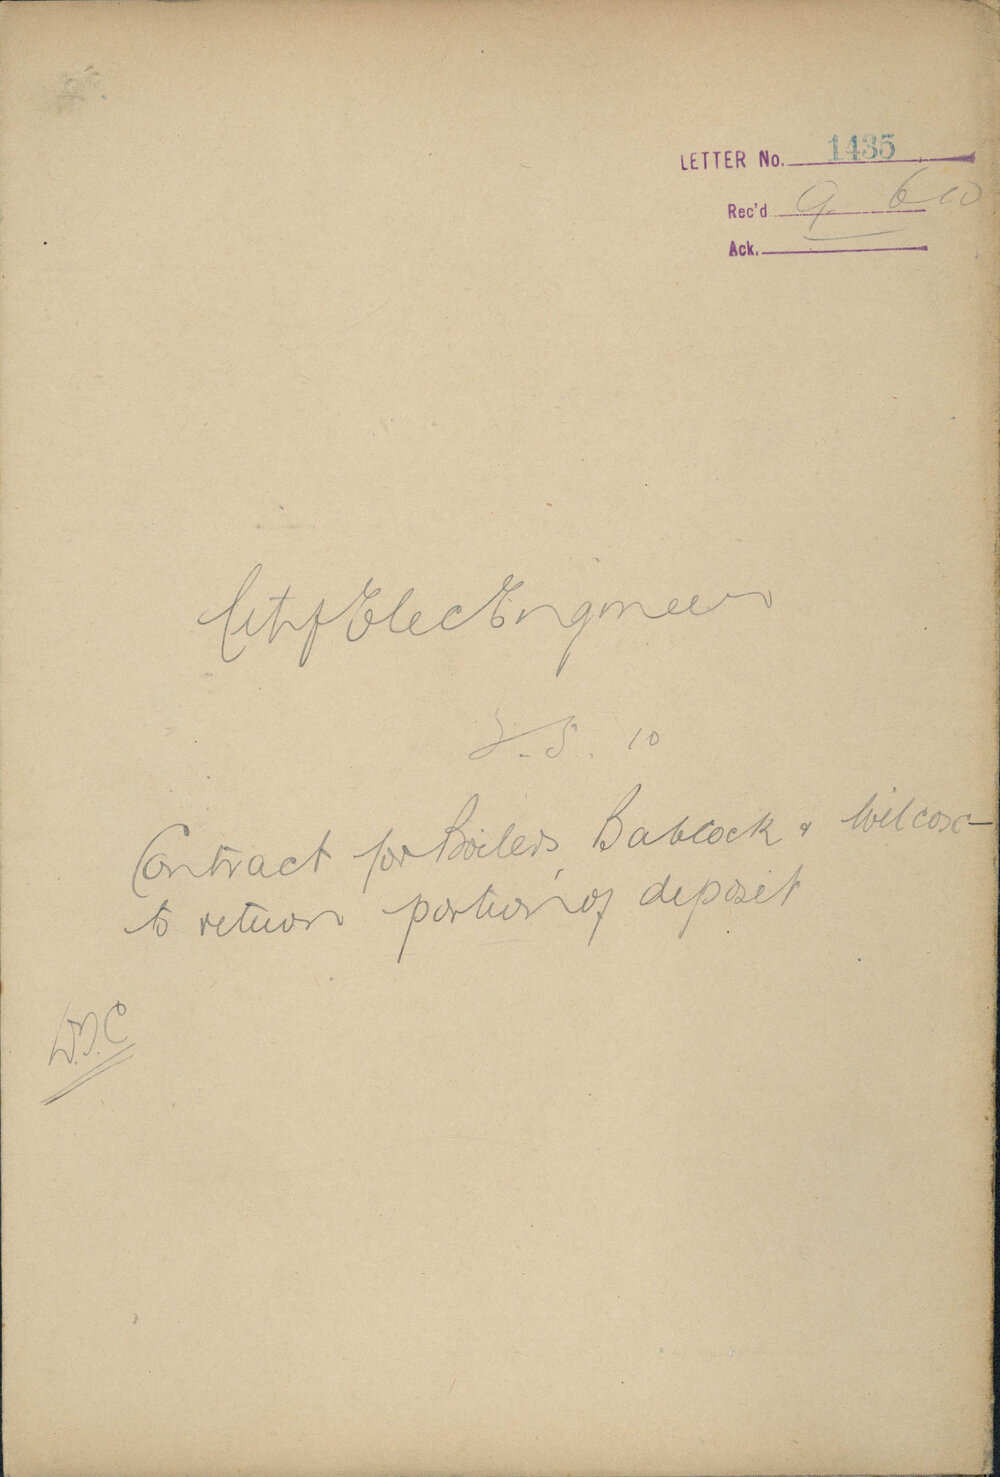 LETTER No. 1435
Rec'd 9 6 10
Ack.
City Elec Engineer
5. 10
Contract for Boilers Babcock & Wilcox
to return portion of deposit